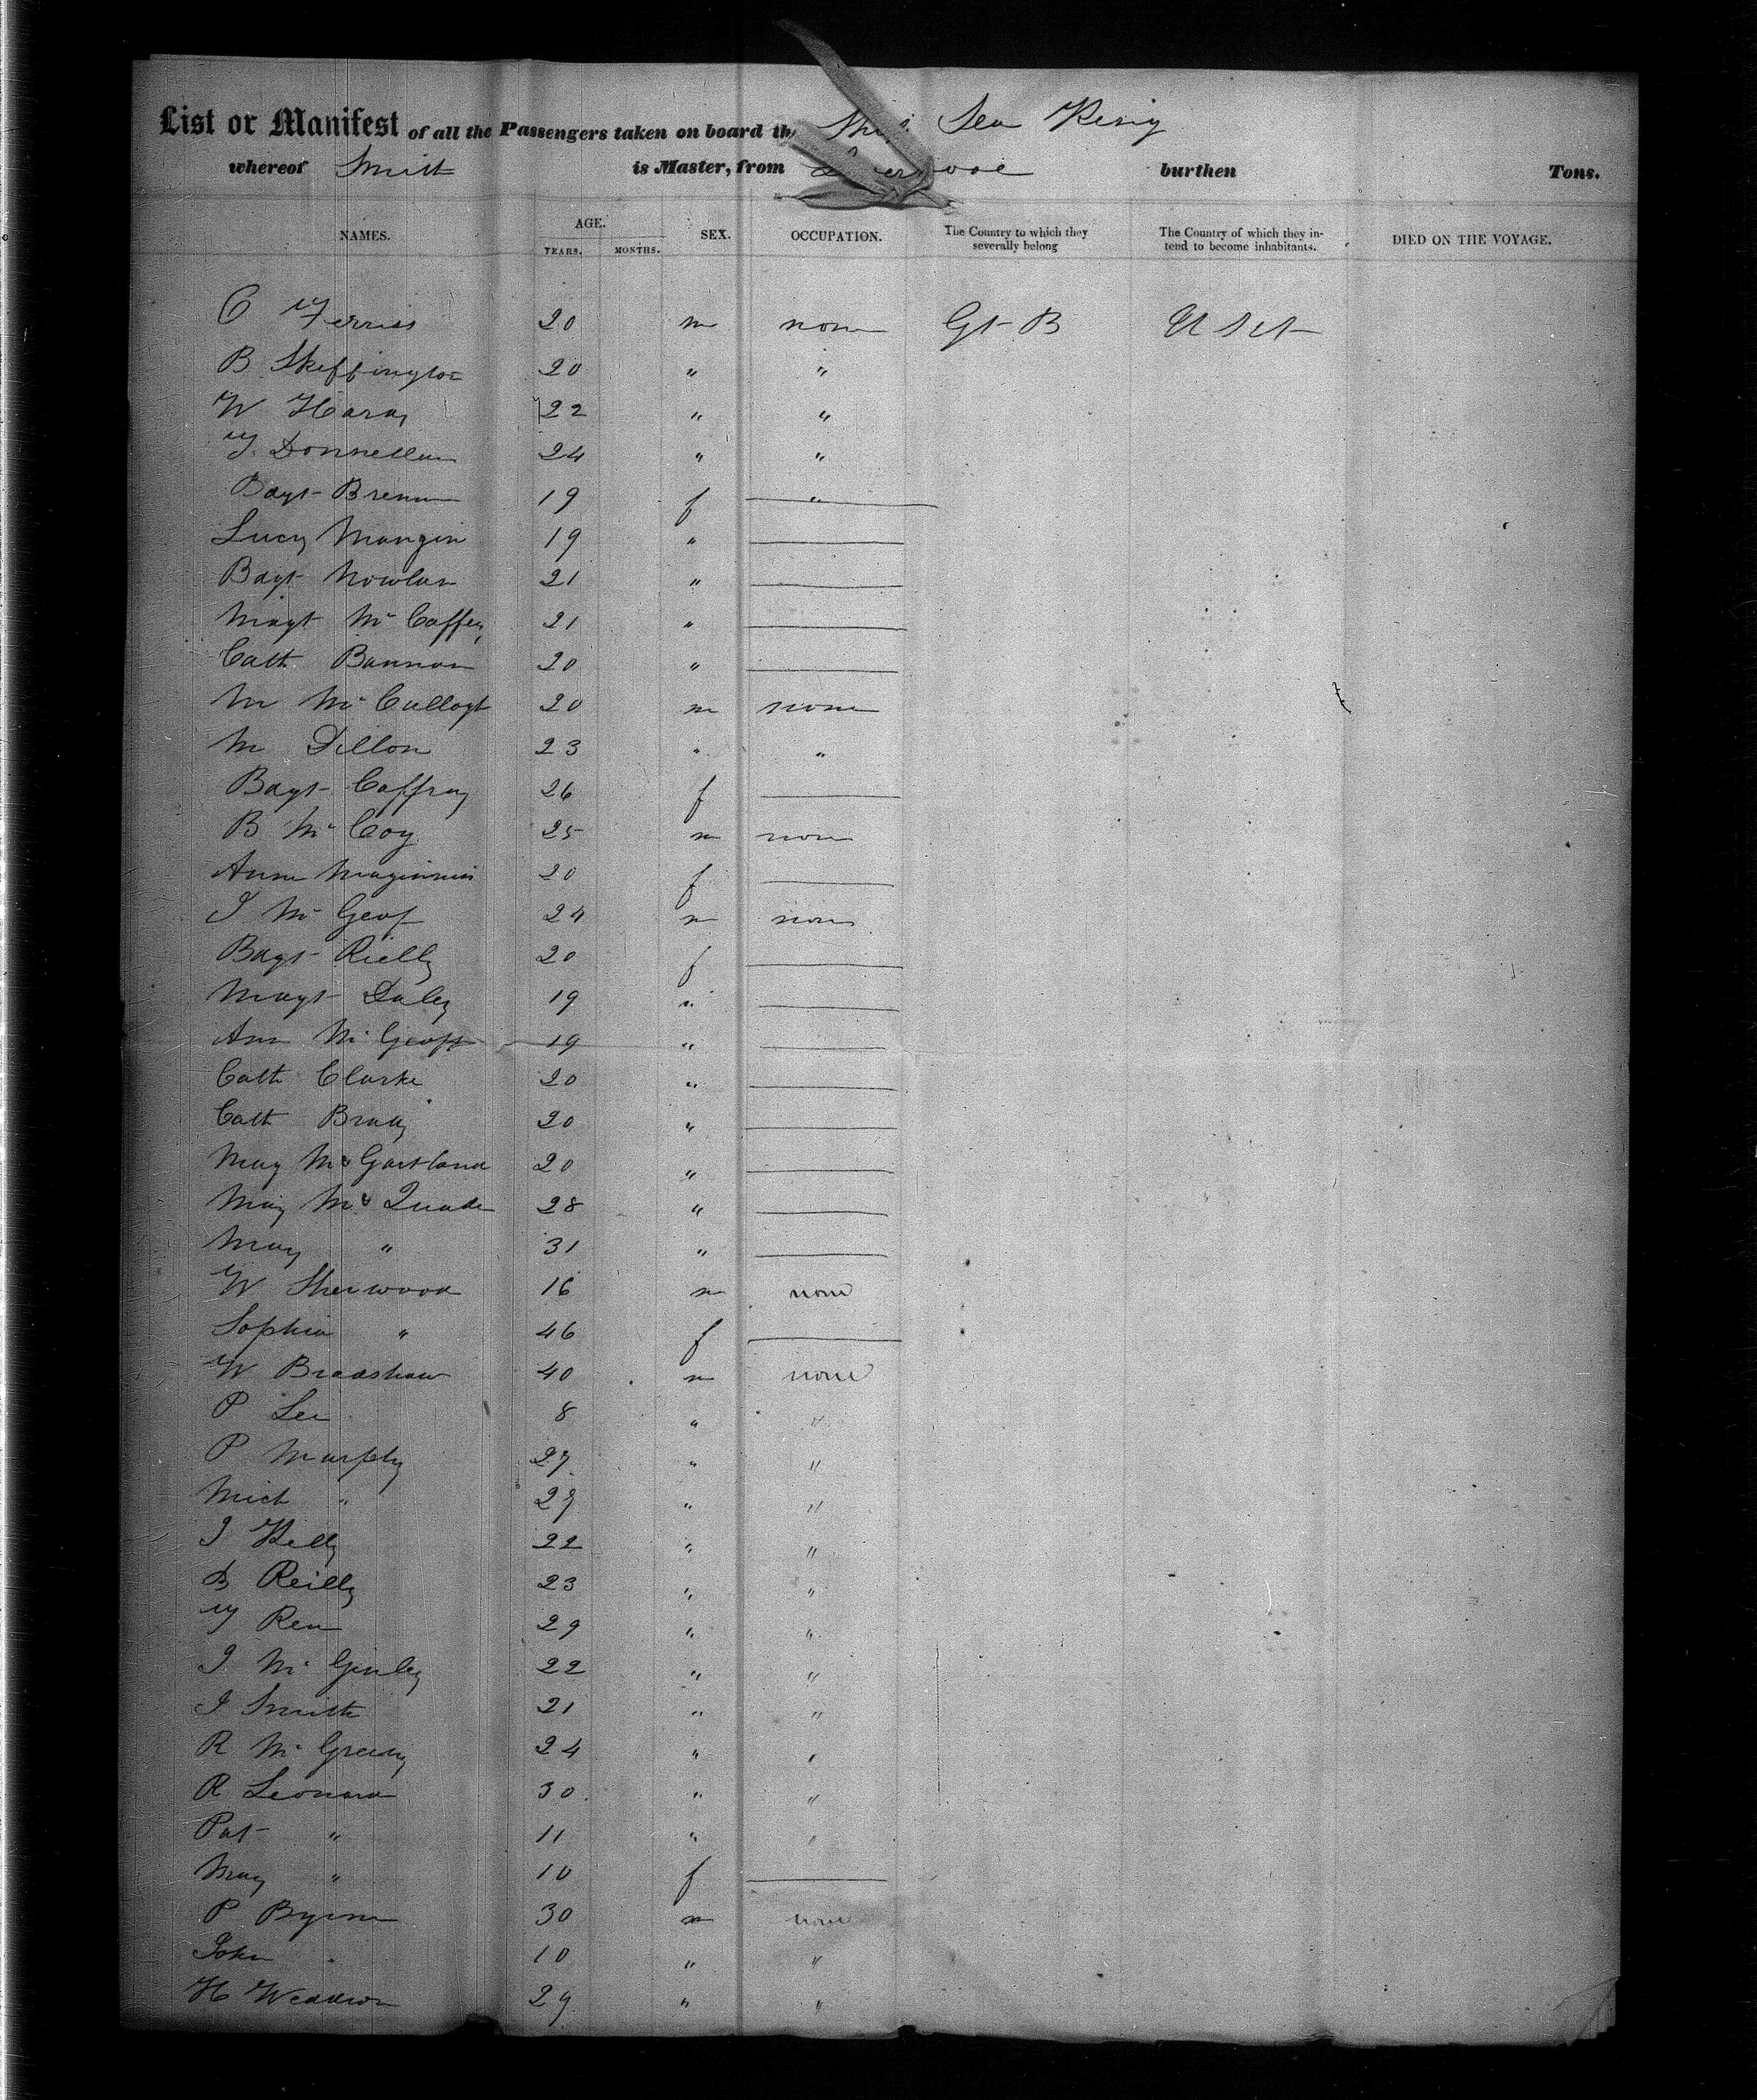 List or Manifest of all the Passengers taken on board the Ship Sea King
whereof Smith is Master, from burthen Tons.
NAMES. AGE. YEARS. MONTHS. SEX. OCCUPATION. The Country to which they severally belong The Country of which they intend to become inhabitants. DIED ON THE VOYAGE.
C Ferriss 20 m none Gt B U St
B Skeffington 20 " "
W Hara 22 " "
T. Donnellan 24 " "
Bagt Brenn 19 f "
Lucy Mangin 19 "
Bagt Nowlan 21 "
Magt Mc Caffery 21 "
Cath Bannon 20 "
M Mc Cullogh 20 m none
M Dillon 23 " "
Bagt Caffray 26 f
B Mc Coy 25 m none
Anne Maginnis 20 f
J Mc Geof 24 m none
Bagt Rielly 20 f
Magt Daley 19 "
Ann Mc Geoff 19 "
Cath Clarke 20 "
Cath Brady 20 "
May Mc Gartland 20 "
May Mc Quade 28 "
May " 31 "
W Sherwood 16 m none
Sophia " 46 f
W Bradshaw 40 m none
P Lee 8 " "
P Murphy 27 " "
Mich " 27 " "
J Kelly 22 " "
B Reilly 23 " "
T Ren 29 " "
J. Mc Ginley 22 " "
J Smith 21 " "
R Mc Greevy 24 " "
R Leonard 30 " "
Pat " 11 " "
May " 10 f
P Byrne 30 m none
John " 10 " "
H 29 " "